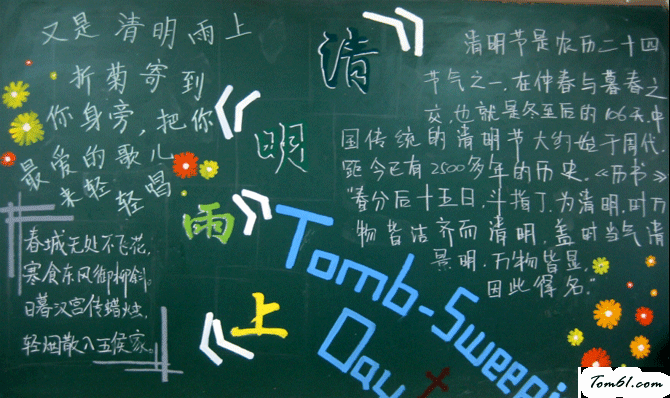 又是清明雨上
折菊寄到
你身旁，把你
最爱的歌儿
来轻轻唱
春城无处不飞花，
寒食东风御柳斜。
日暮汉宫传蜡烛，
轻烟散入五侯家。
清
明
雨
上
Tomb-Sweepi
Day
清明节是农历二十四
节气之一，在仲春与暮春之
交，也就是冬至后的106天。中
国传统的清明节大约始于周代，
距今已有2500多年的历史。《历书》：
“春分后十五日，斗指丁，为清明，时万
物皆洁齐而清明，盖时当气清
景明，万物皆显，
因此得名。”
Tom61.com